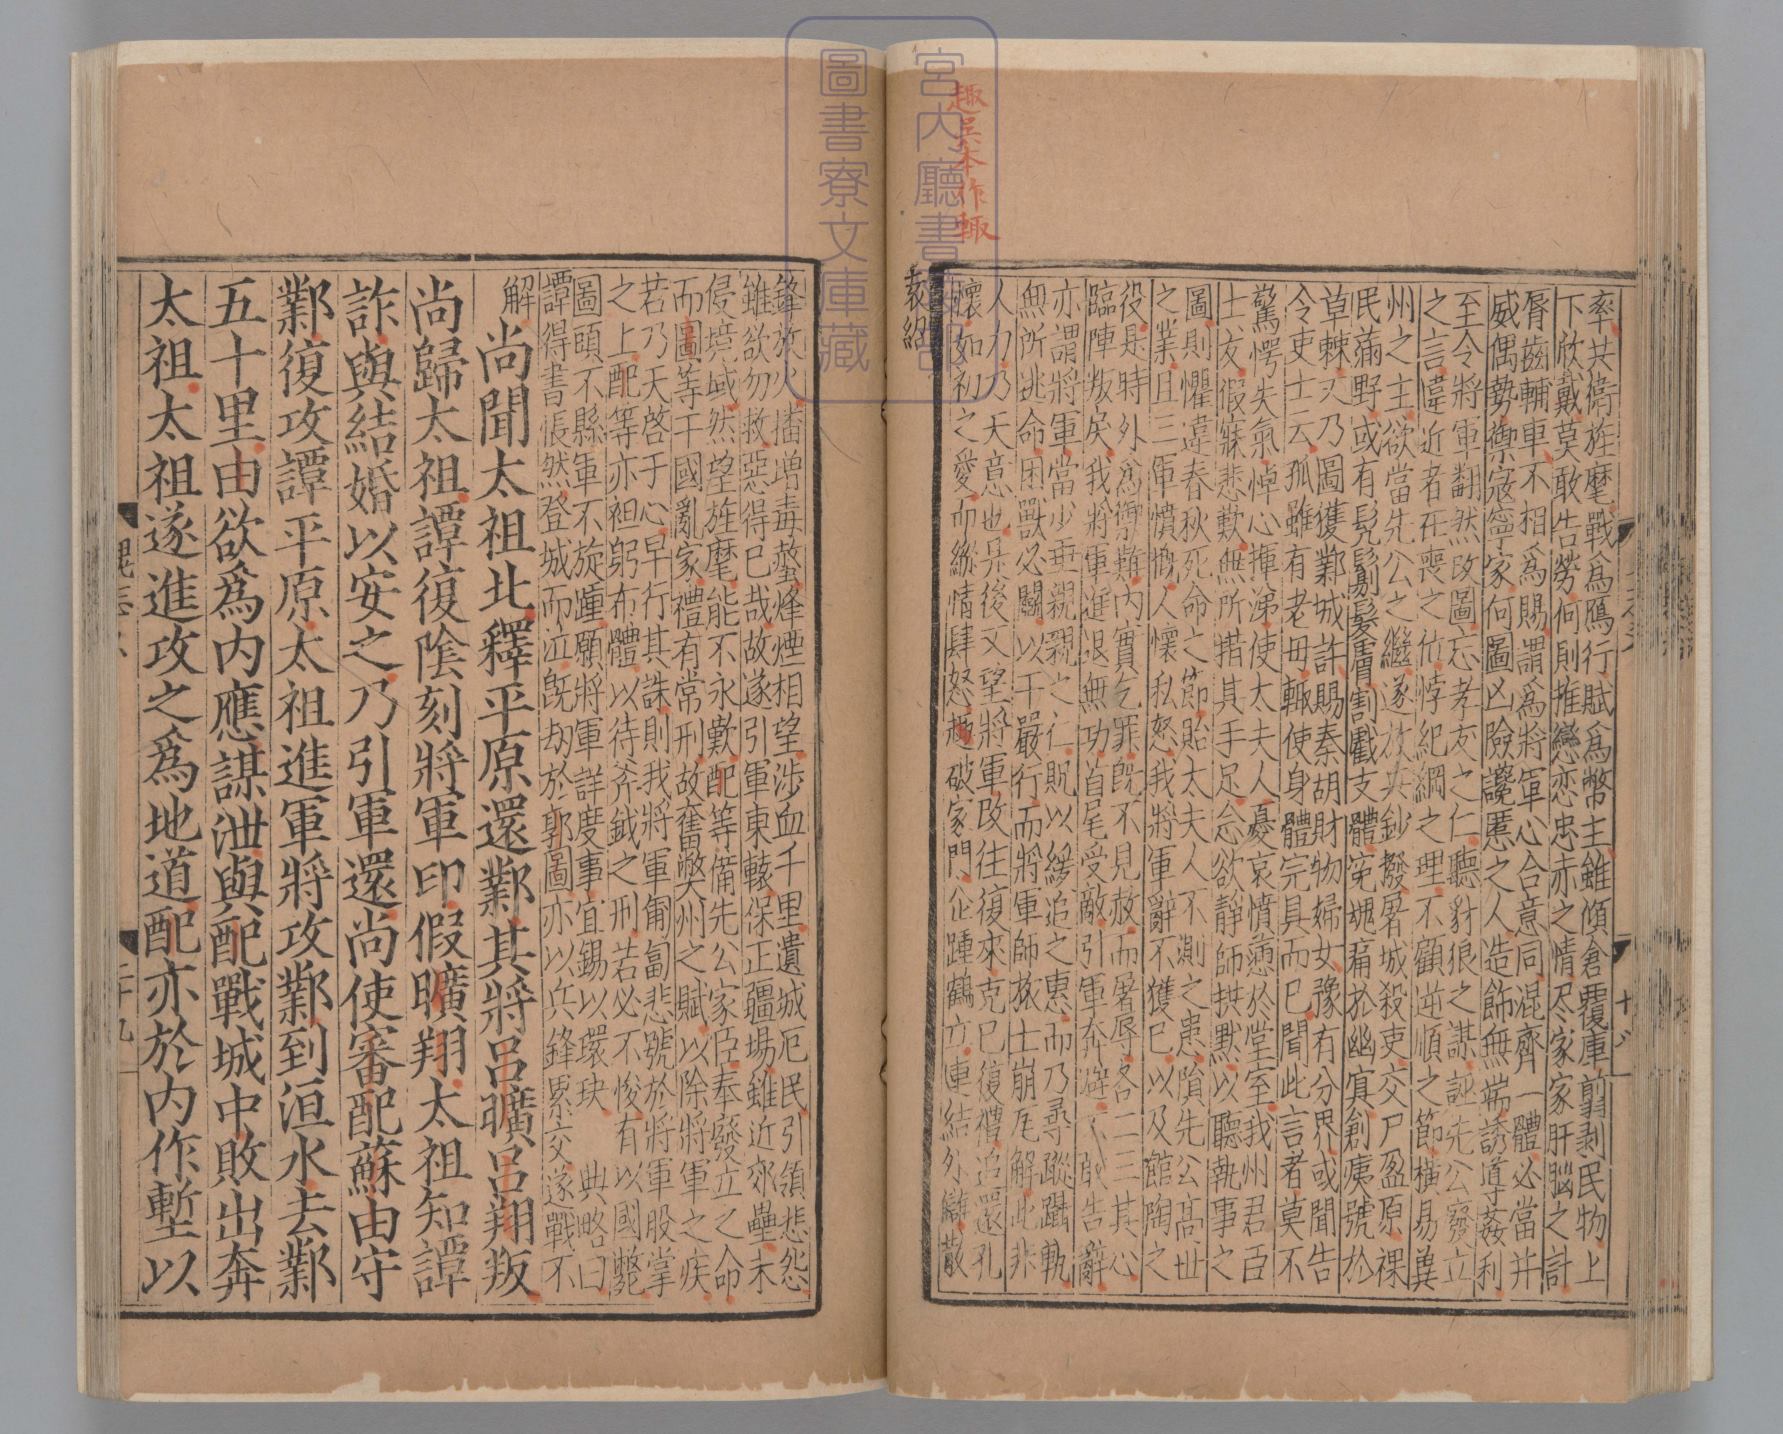 趣吳本作輙
率共衛旌麾戰為鴈行賦為幣主雖傾倉覆庫翦剥民物上
下欣戴莫敢告勞何則推戀戀忠赤之情尽家家肝腦之計
脣齒輔車不相為賜謂為將軍心合意同混齊一體必當并
威偶勢禦寇寧家何圖凶險讒慝之人造飾無端誘導姦利
至令將軍翻然改圖忘孝友之仁聽豺狼之謀誣先公廢立
之言違近者在喪之位悖紀綱之理不顧逆順之節橫易冀
州之主欲當先公之繼遂放兵鈔撥屠城殺吏交尸盈原裸
民滿野或有髠鬄髮膚割截支體寃魂痛於幽冥創痍號於
草棘又乃圖獲鄴城許賜秦胡財物婦女豫有分界或聞告
令吏士云孤雖有老母輒使身體完具而已聞此言者莫不
驚愕失氣悼心揮涕使太夫人憂哀憤懣於堂室我州君臣
士友假寐悲歎無所措其手足念欲靜師拱默以聽執事之
圖則懼違春秋死命之節貽太夫人不測之患隕先公高世
之業且三軍憤慨人懷私怒我將軍辭不獲已以及館陶之
役是時外為禦難内實乞罪既不見赦而屠辱各二三其心
臨陣叛戾我將軍進退無功首尾受敵引軍奔避不敢告辭
亦謂將軍當少垂親親之仁貺以緩追之惠而乃尋蹤躡軌
無所逃命困獸必鬭以干嚴行而將軍師旅土崩瓦解此非
人力乃天意也是後又望將軍改往復來克己復禮追還孔
懷如初之愛而縱情肆怒趣破家門企踵鶴立連結外讎散
袁紹
鋒放火播增毒螫烽煙相望涉血千里遺城厄民引領悲怨
雖欲勿救惡得已哉故遂引軍東轅保正疆埸雖近郊壘未
侵境域然望旌麾能不永歎配等備先公家臣奉廢立之命
而圖等干國亂家禮有常刑故奮弊州之賦以除將軍之疾
若乃天啓于心早行其誅則我將軍匍匐悲號於將軍股掌
之上配等亦袒躬布體以待斧鉞之刑若必不悛有以國斃
圖頭不縣軍不旋踵願將軍詳度事宜錫以環玦 典略曰
譚得書悵然登城而泣既劫於郭圖亦以兵鋒累交遂戰不
解 尚聞太祖北釋平原還鄴其將呂曠呂翔叛
尚歸太祖譚復陰刻將軍印假曠翔太祖知譚
詐與結婚以安之乃引軍還尚使審配蘇由守
鄴復攻譚平原太祖進軍將攻鄴到洹水去鄴
五十里由欲為内應謀泄與配戰城中敗出奔
太祖太祖遂進攻之為地道配亦於内作塹以
宮内廳書陵部
圖書寮文庫藏